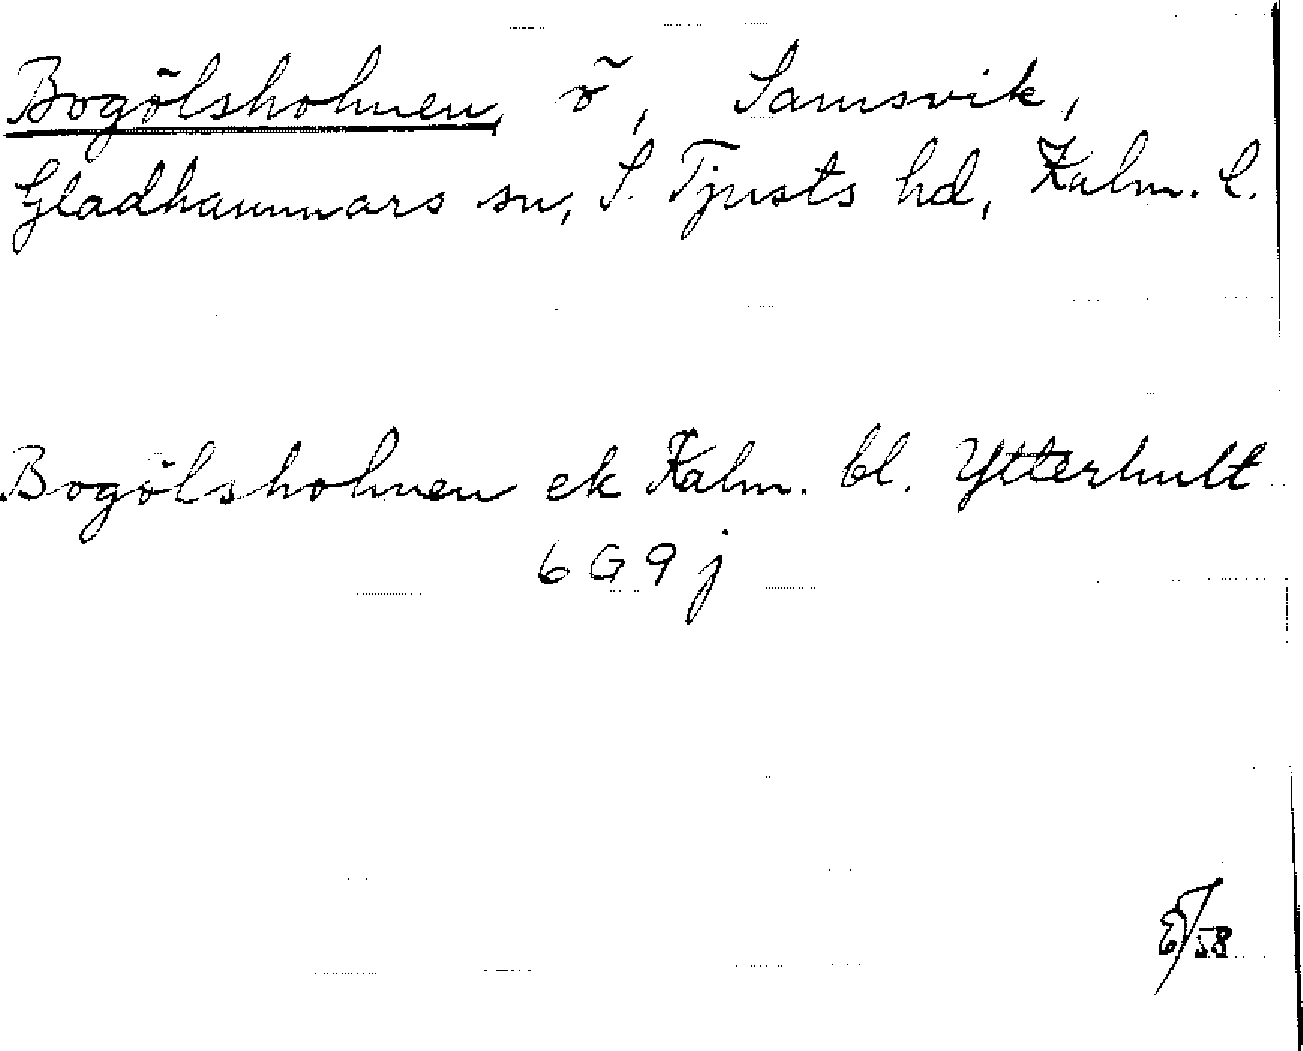 Bogölsholmen, ö, Samsvik,
Gladhammars sn, S. Tjusts hd, Kalm. l.
Bogölsholmen ek Kalm. bl. Ytterhult
6 G 9 j